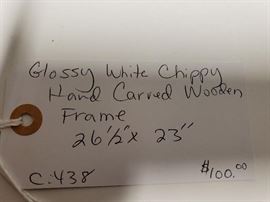 Glossy White Chippy
Hand Carved Wooden
Frame
26 1/2" x 23"
C:438
$100.00